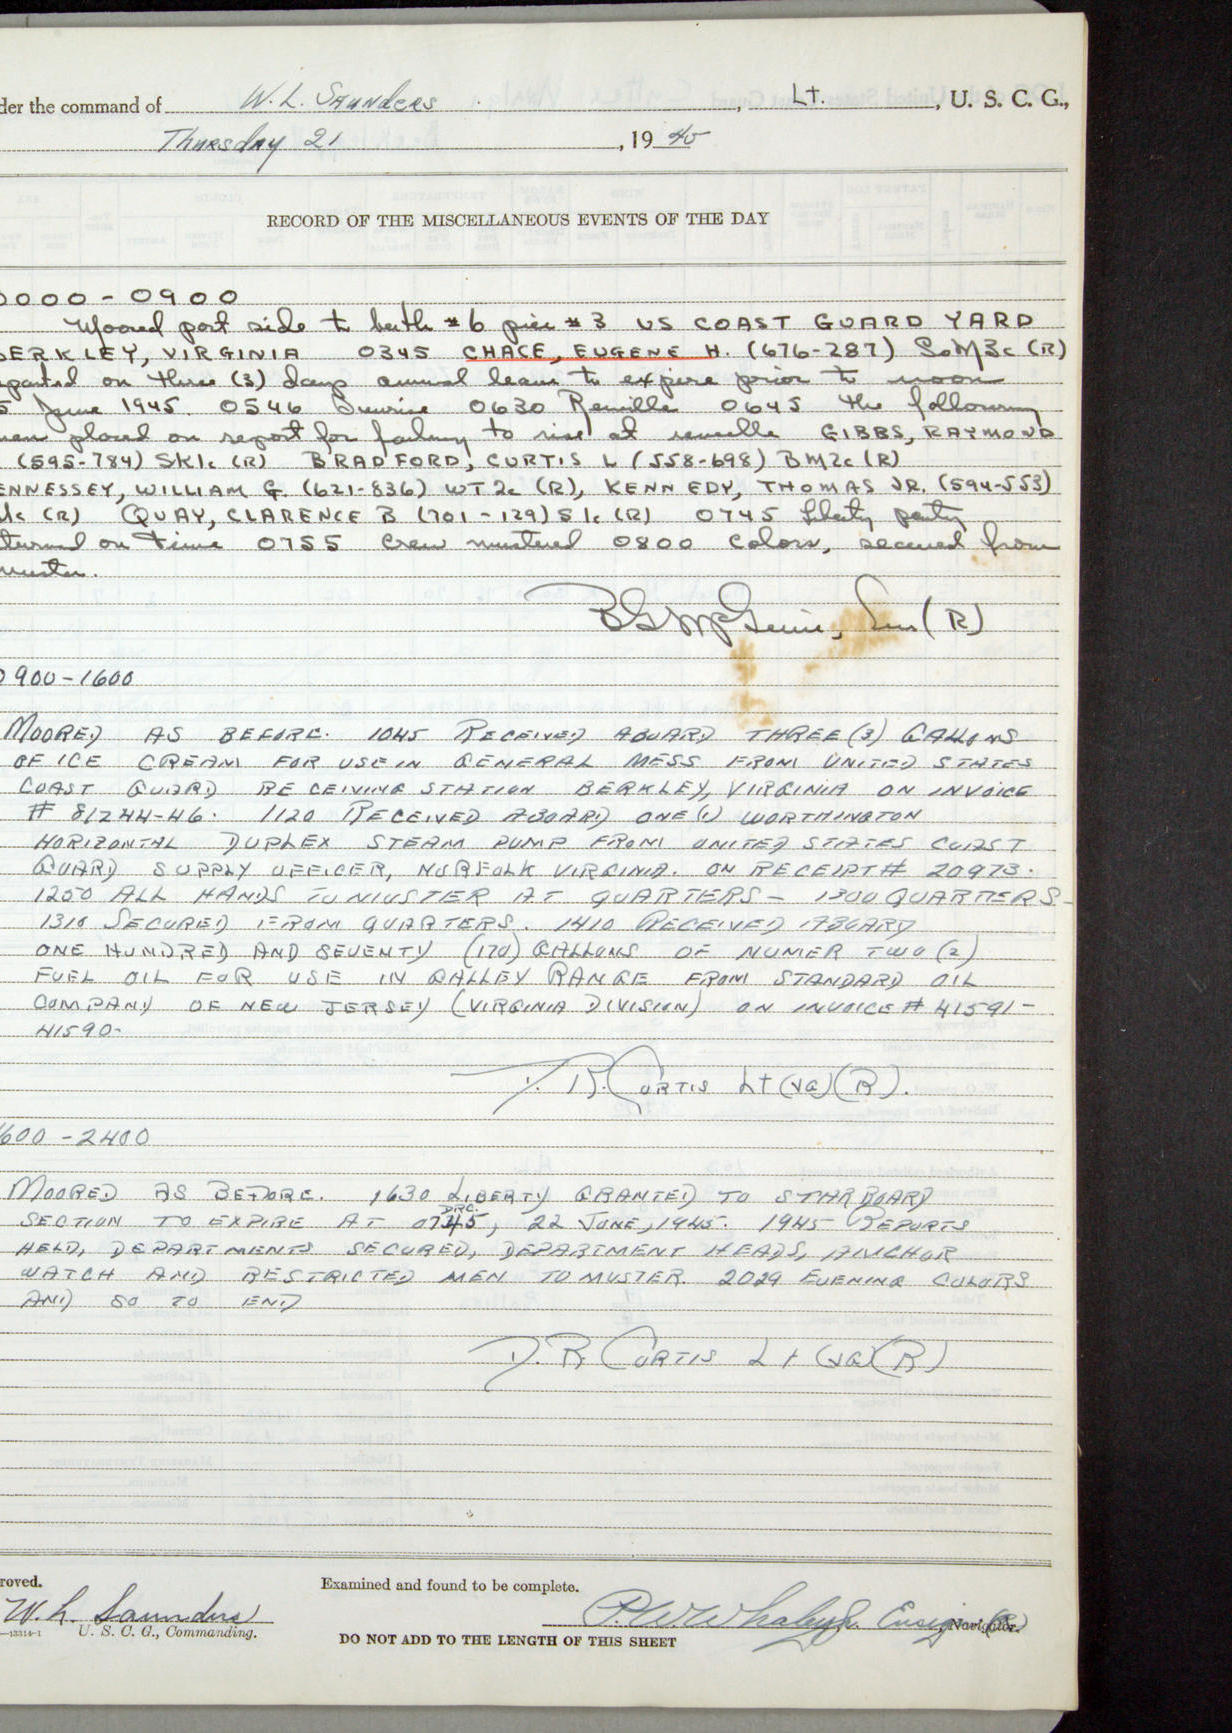 der the command of W. L. Saunders, Lt., U. S. C. G.,
Thursday 21, 1945
RECORD OF THE MISCELLANEOUS EVENTS OF THE DAY
0000-0900
Moored port side to berth #6 pier #3 US COAST GUARD YARD
BERKLEY, VIRGINIA 0345 CHACE, EUGENE H. (676-287) SoM3c (R)
parted on three (3) days annual leave to expire prior to noon
5 June 1945. 0546 Sunrise 0630 Reveille 0645 the following
men placed on report for failing to rise at reveille GIBBS, RAYMOND
(595-784) SK1c (R) BRADFORD, CURTIS L (558-698) BM2c (R)
ENNESSEY, WILLIAM G. (621-836) WT2c (R), KENNEDY, THOMAS JR. (594-553)
1c (R) QUAY, CLARENCE B (701-129) S1c (R) 0745 Liberty party
turned on time 0755 Crew mustered 0800 Colors, secured from
muster.
Ens (R)
0900-1600
MOORED AS BEFORE. 1045 RECEIVED ABOARD THREE (3) GALLONS
OF ICE CREAM FOR USE IN GENERAL MESS FROM UNITED STATES
COAST GUARD RECEIVING STATION BERKLEY, VIRGINIA ON INVOICE
# 81244-46. 1120 RECEIVED ABOARD ONE (1) WORTHINGTON
HORIZONTAL DUPLEX STEAM PUMP FROM UNITED STATES COAST
GUARD SUPPLY OFFICER, NORFOLK VIRGINIA. ON RECEIPT # 20973.
1250 ALL HANDS TO MUSTER AT QUARTERS - 1300 QUARTERS -
1310 SECURED FROM QUARTERS. 1410 RECEIVED ABOARD
ONE HUNDRED AND SEVENTY (170) GALLONS OF NUMER TWO (2)
FUEL OIL FOR USE IN GALLEY RANGE FROM STANDARD OIL
COMPANY OF NEW JERSEY (VIRGINIA DIVISION) ON INVOICE # 41591-
41590-
D. R. CURTIS Lt (JG)(R).
1600-2400
MOORED AS BEFORE. 1630 LIBERTY GRANTED TO STARBOARD
DRC
SECTION TO EXPIRE AT 0745, 22 JUNE, 1945. 1945 REPORTS
HELD, DEPARTMENTS SECURED, DEPARTMENT HEADS, ANCHOR
WATCH AND RESTRICTED MEN TO MUSTER. 2029 EVENING COLORS
AND SO TO END
D. R. CURTIS Lt (JG)(R)
roved. Examined and found to be complete.
W. L. Saunders Ensign (R) Navigator.
13314-1 U. S. C. G., Commanding.
DO NOT ADD TO THE LENGTH OF THIS SHEET